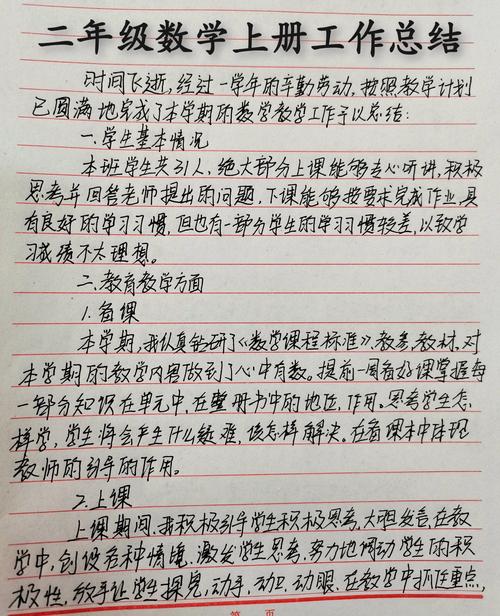 二年级数学上册工作总结
时间飞逝,经过一学年的辛勤劳动,按照教学计划
已圆满地完成了本学期的数学教学工作予以总结:
一.学生基本情况
本班学生共31人,绝大部分上课能够专心听讲,积极
思考并回答老师提出的问题,下课能够按要求完成作业,具
有良好的学习习惯,但也有一部分学生的学习习惯较差,以致学
习成绩不太理想。
二.教育教学方面
1.备课
本学期,我认真钻研了《数学课程标准》教参,教材,对
本学期的教学内容做到了心中有数。提前一周备好课掌握每
一部分知识在单元中,在整册书中的地位,作用。思考学生怎
样学,学生将会产生什么疑难,该怎样解决。在备课本中体现
教师的引导的作用。
2.上课
上课期间,我积极引导学生积极思考,大胆发言,在教
学中,创设各种情境,激发学生思考,努力地调动学生的积
极性,放手让学生探究,动手,动口,动眼,在教学中抓住重点,
第 页